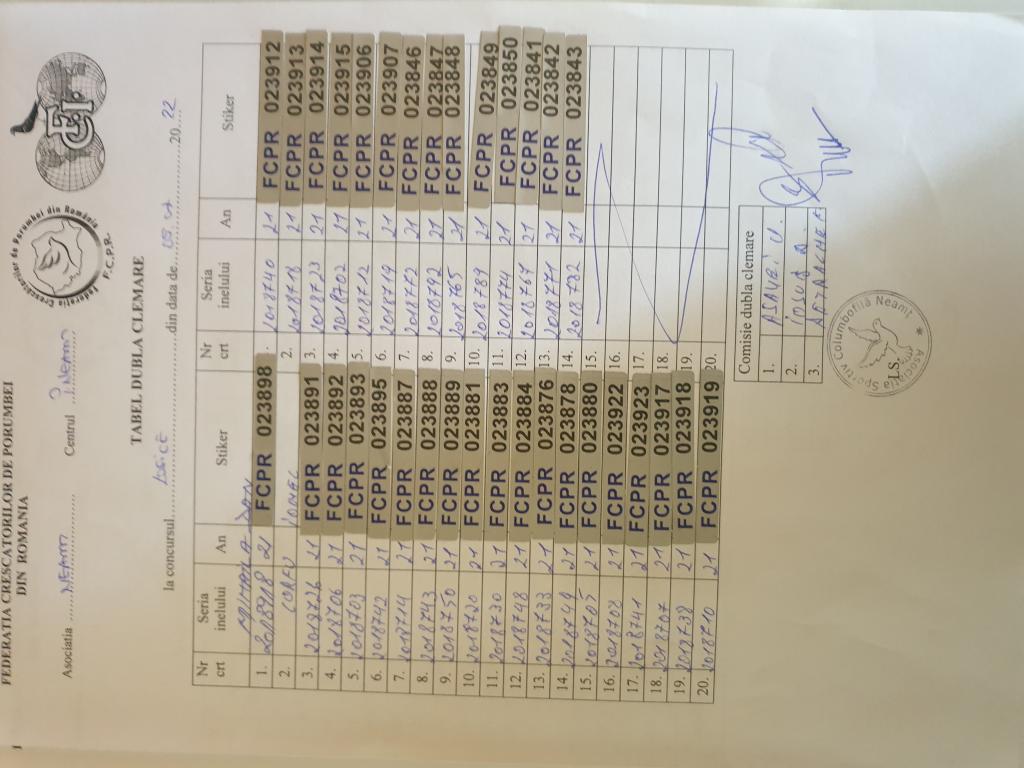 1
FEDERATIA CRESCATORILOR DE PORUMBEI
DIN ROMANIA
Federatia Crescatorilor de Porumbei din România
F.C.P.R.
Asociatia ...NEAMT...... Centrul ...P. Neamt
TABEL DUBLA CLEMARE
la concursul..................din data de...............20..22
Nr crt Seria inelului An Stiker Nr crt Seria inelului An Stiker
MIHAILA DAN
1. 2018918 21 FCPR 023898 . 2018740 21 FCPR 023912
2. CORFU IONEL 2. 2018718 21 FCPR 023913
3. 2018726 21 FCPR 023891 3. 2018723 21 FCPR 023914
4. 2018706 21 FCPR 023892 4. 2018702 21 FCPR 023915
5. 2018703 21 FCPR 023893 5. 2018712 21 FCPR 023906
6. 2018742 21 FCPR 023895 6. 2018719 21 FCPR 023907
7. 2018714 21 FCPR 023887 7. 2018772 21 FCPR 023846
8. 2018743 21 FCPR 023888 8. 2018792 21 FCPR 023847
9. 2018750 21 FCPR 023889 9. 2018765 21 FCPR 023848
10. 2018720 21 FCPR 023881 10. 2018789 21 FCPR 023849
11. 2018730 21 FCPR 023883 11. 2018774 21 FCPR 023850
12. 2018748 21 FCPR 023884 12. 2018767 21 FCPR 023841
13. 2018733 21 FCPR 023876 13. 2018771 21 FCPR 023842
14. 2018749 21 FCPR 023878 14. 2018782 21 FCPR 023843
15. 2018705 21 FCPR 023880 15.
16. 2018708 21 FCPR 023922 16.
17. 2018741 21 FCPR 023923 17.
18. 2018707 21 FCPR 023917 18.
19. 2018738 21 FCPR 023918 19.
20. 2018710 21 FCPR 023919 20.
Comisie dubla clemare
1. ASAVEI V.
2. IOSUB D.
3. APARACHEI
Asociatia Sportiv Columbofilă Neamt
L.S.